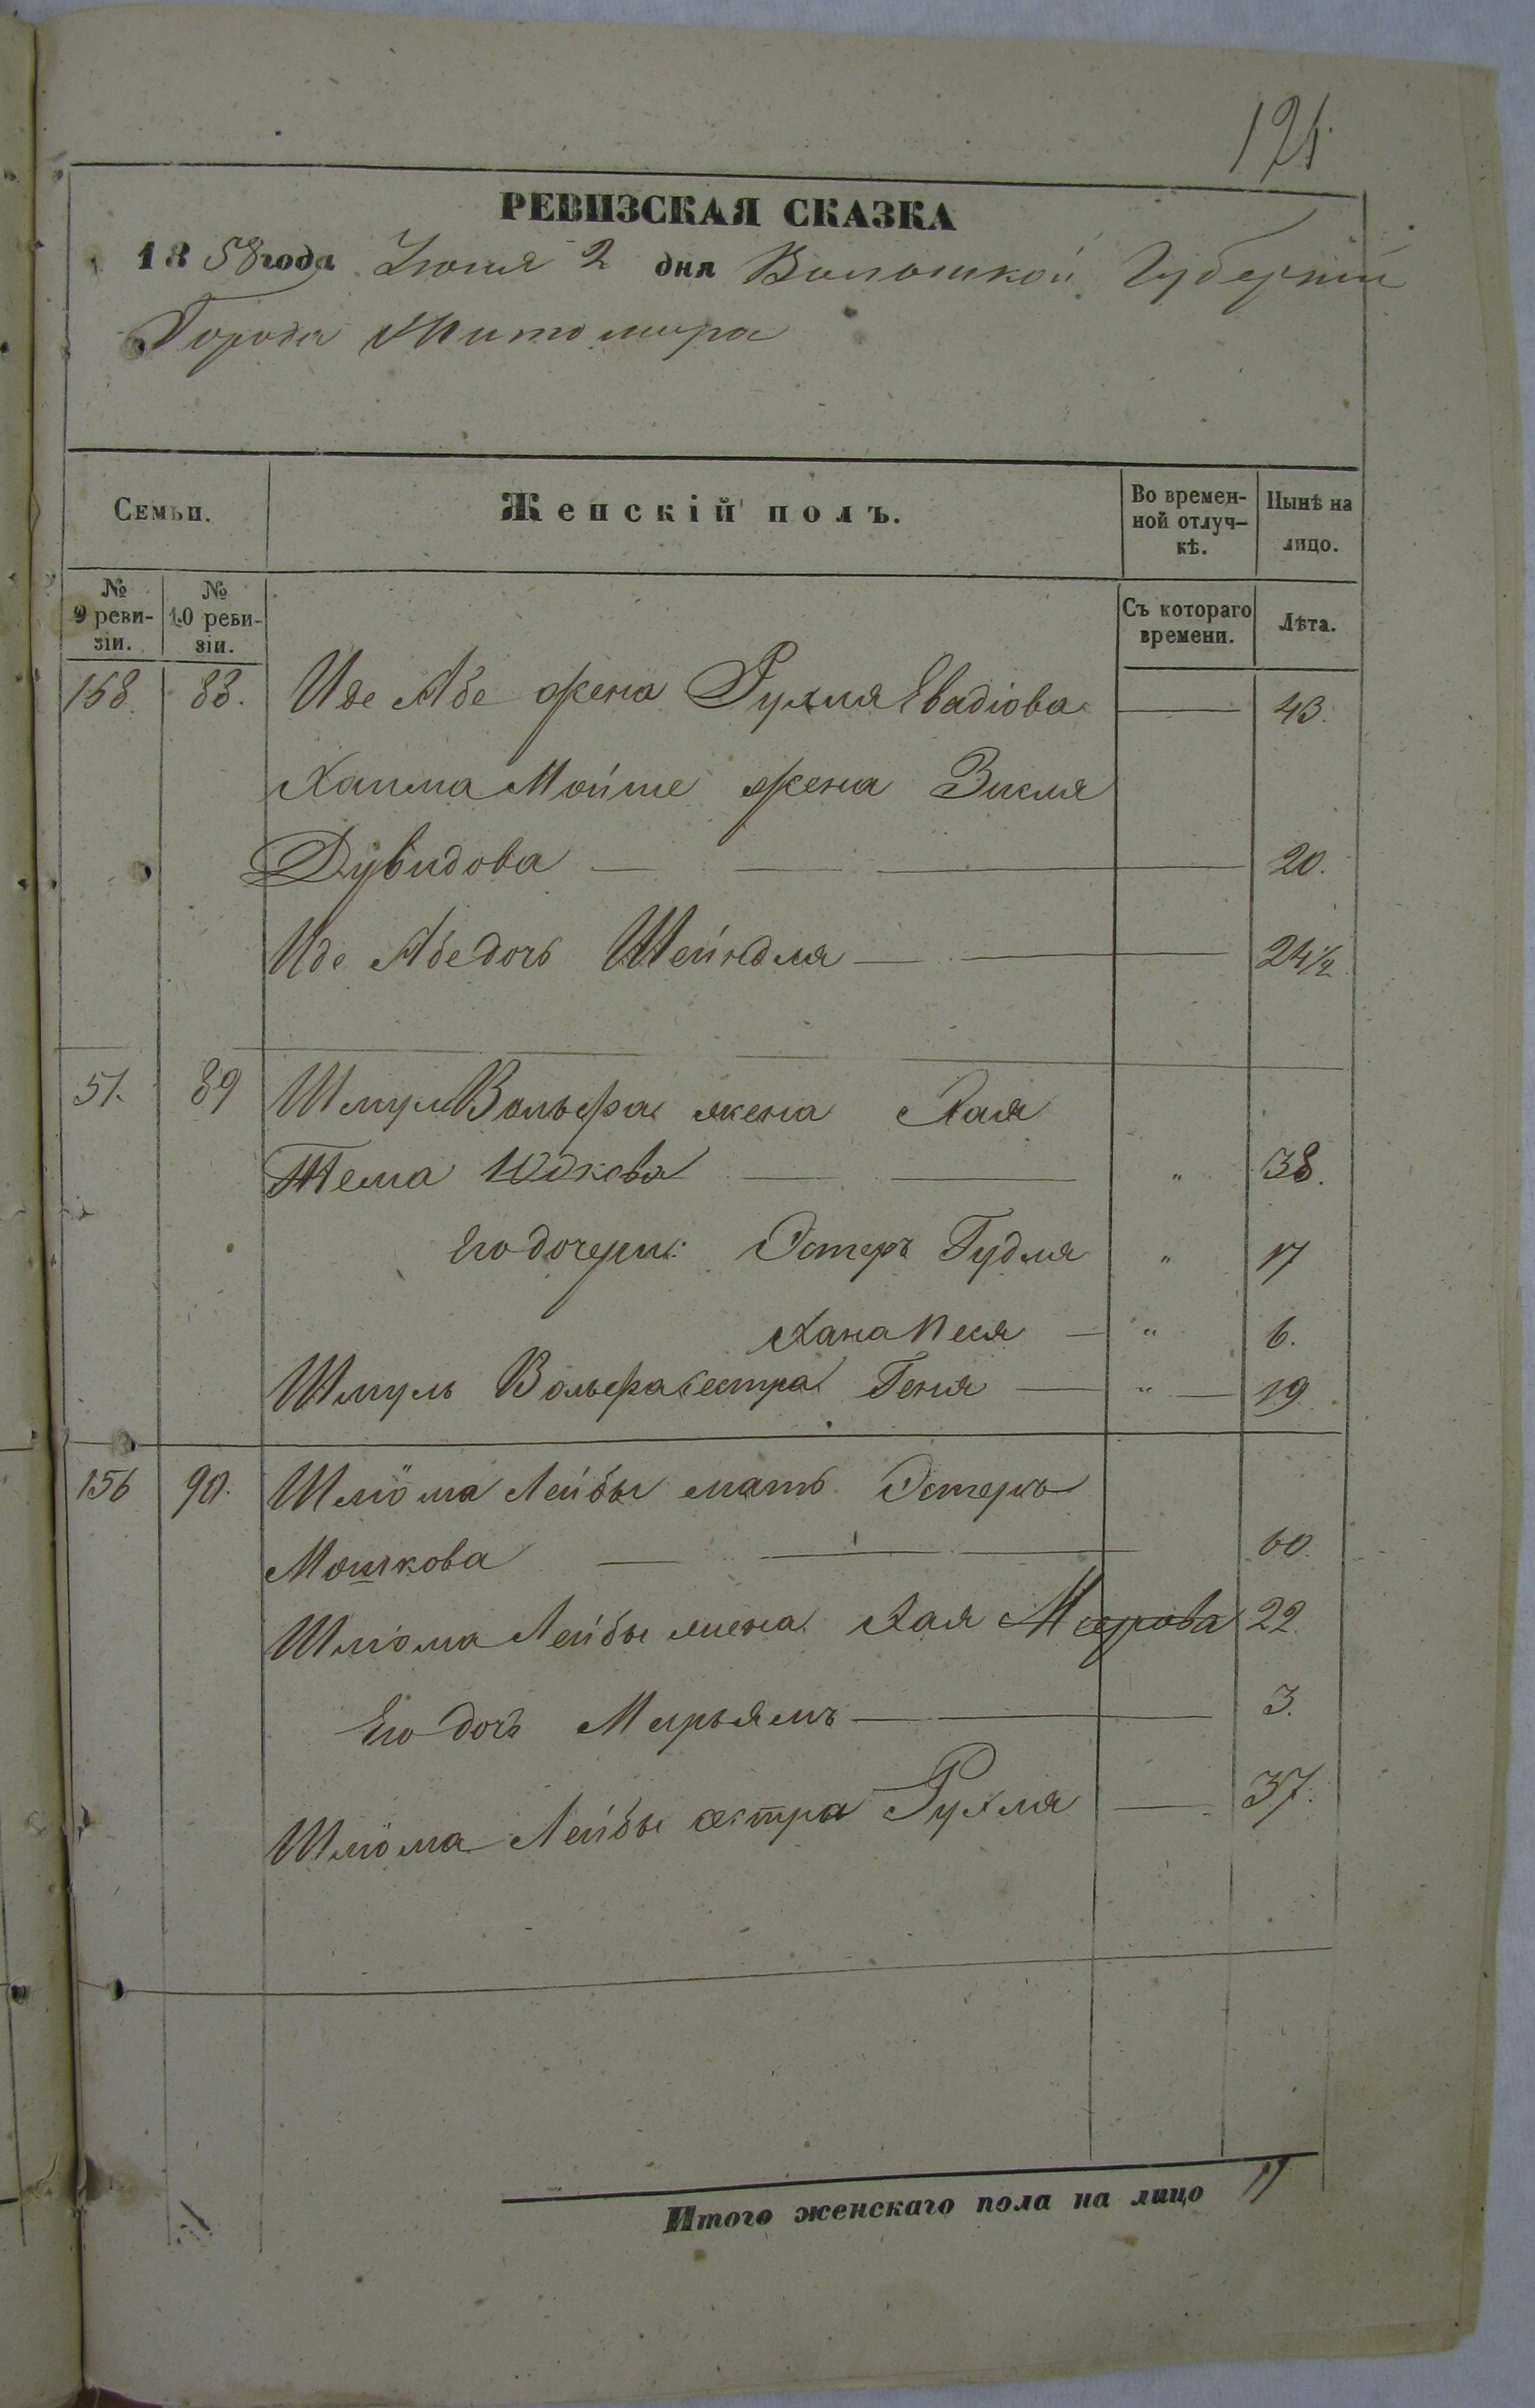 121.
РЕВИЗСКАЯ СКАЗКА
1858 года Іюня 2 дня Волынской Губерніи
Города Житомира
Семьи. Женскій полъ. Во времен- Нынѣ на
ной отлуч- лицо.
кѣ.
№ № Съ котораго Лѣта.
9 реви- 10 реви- времени.
зіи. зіи.
158. 88. Иде Абе жена Рухля Евадіова 43.
Хаима Мойше жена Зисля
Дувидова 20.
Иде Абе дочь Шейндля 24½
51. 89 Шмуль Вольфа жена Хая
Тема Юдкова " 38.
Его дочери: Эстеръ Гудля " 17
Хана Песя " 6.
Шмуль Вольфа сестра Геня " 19
156 90. Шлёма Лейбы мать Эстеръ
Мошкова 60.
Шлёма Лейбы жена Хая Меерова 22.
Его дочь Марьямъ 3.
Шлёма Лейбы сестра Рухля 37.
Итого женскаго пола на лицо 11